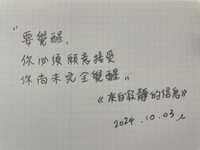 "要覺醒,
你必須願意接受
你尚未完全覺醒。"
《來自寂靜的信息》
2024.10.03